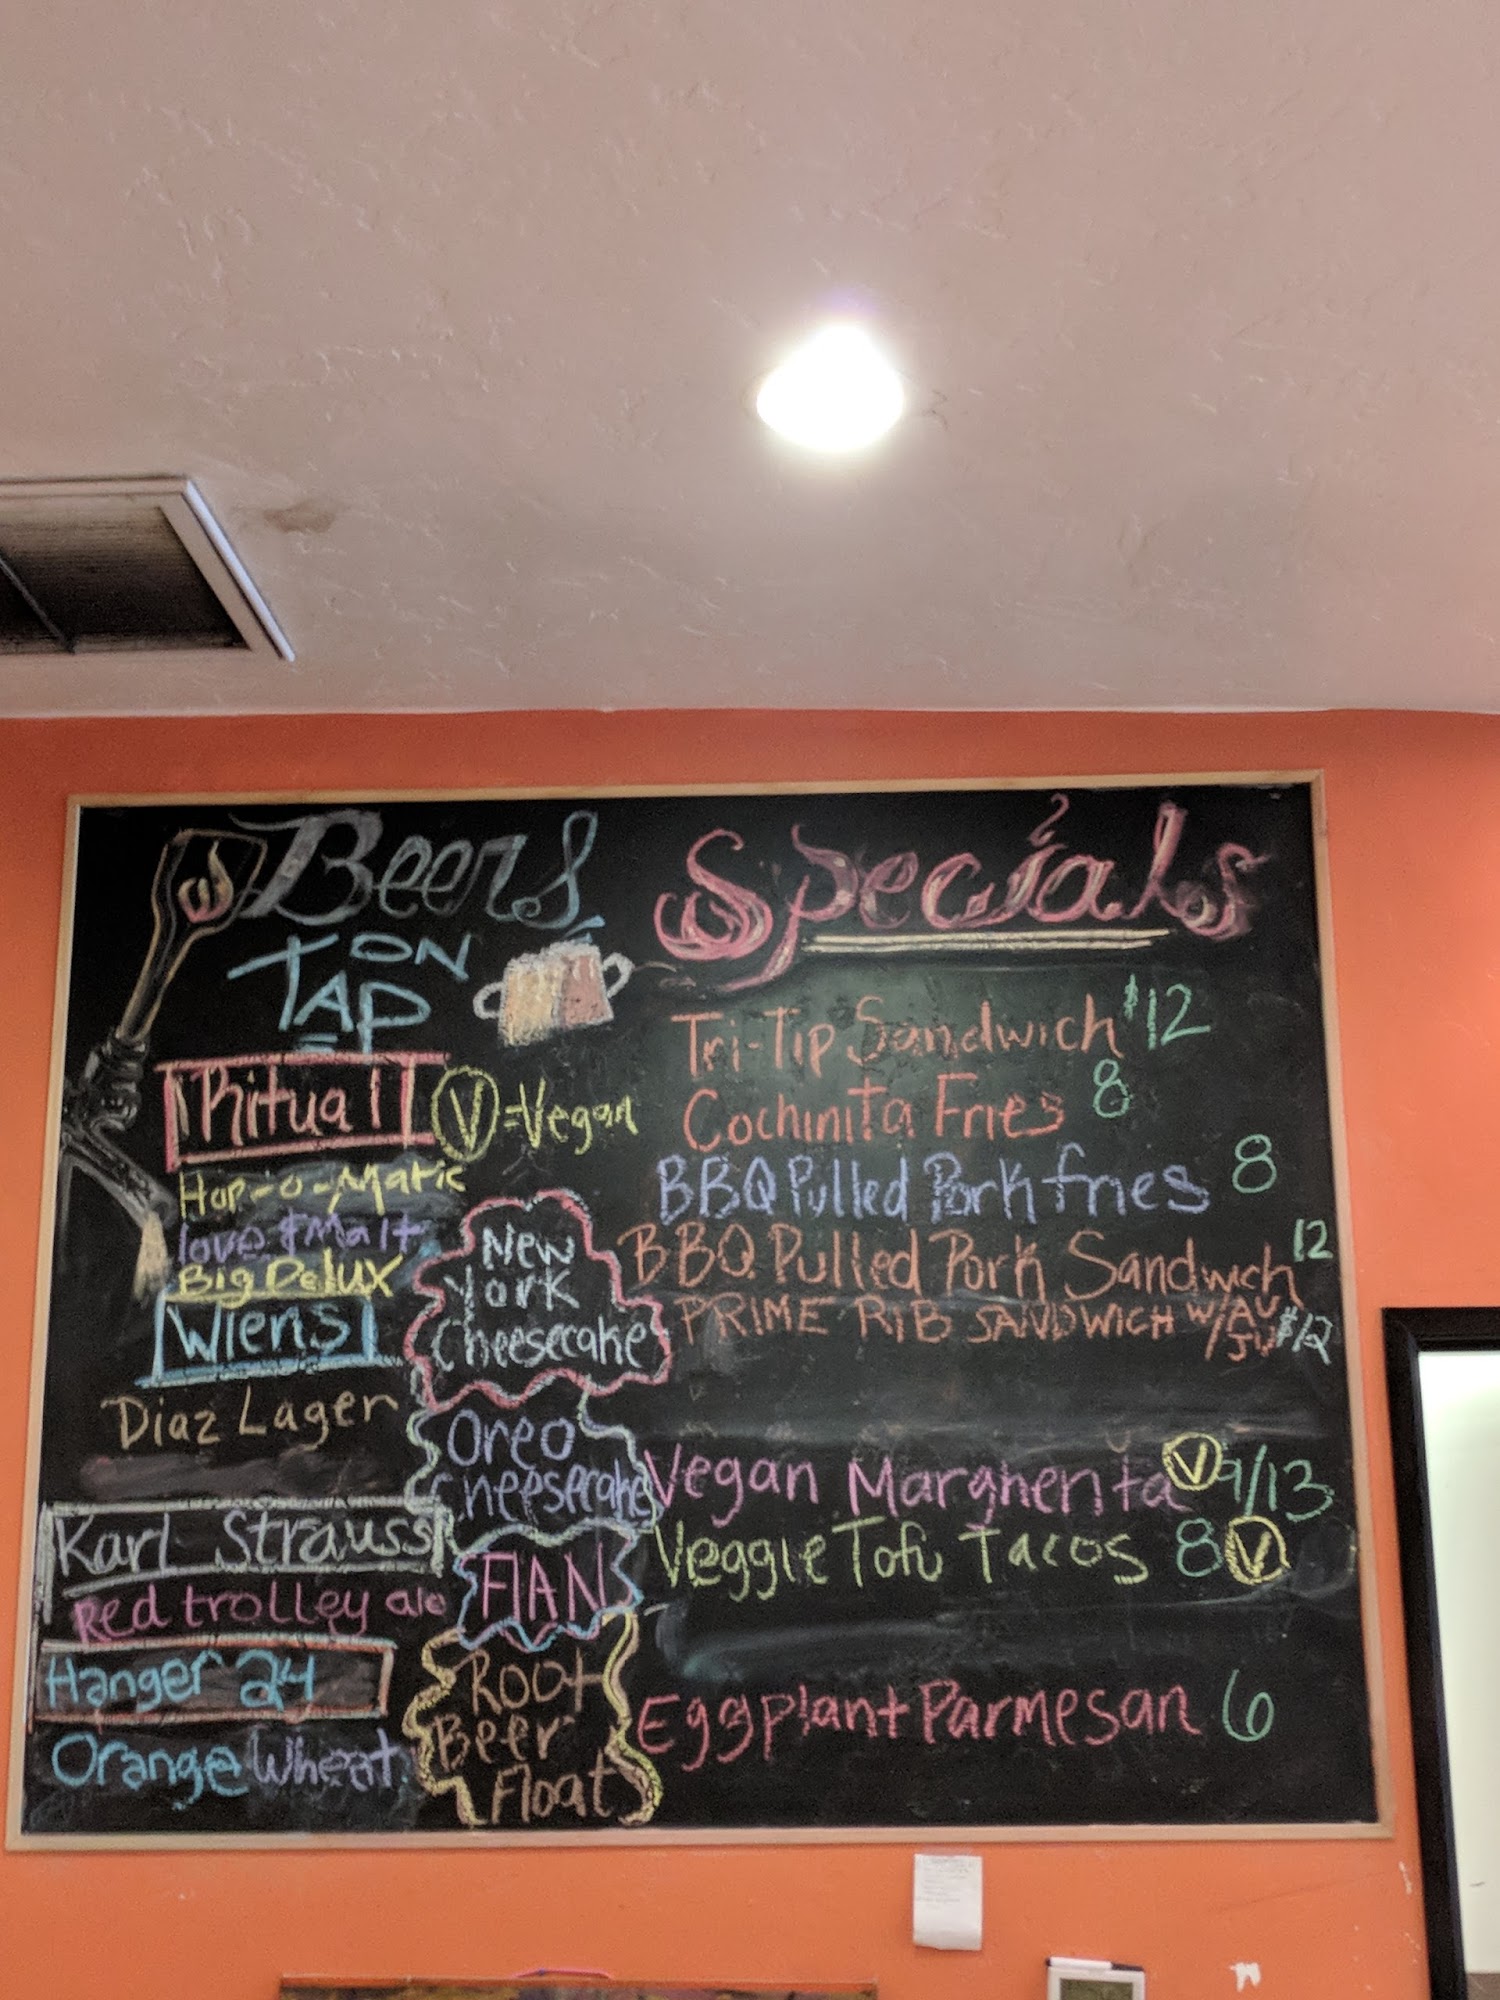 Beers
ON
TAP
Ritual
V = Vegan
Hop-o-Matic
love & Malt
Big Delux
Wiens
Diaz Lager
Karl Strauss
Red trolley ale
Hanger 24
Orange Wheat
New
York
Cheesecake
Oreo
cheesecake
FlAN
Root
Beer
Float
Specials
Tri-Tip Sandwich $12
Cochinita Fries 8
BBQ Pulled Pork fries 8
BBQ Pulled Pork Sandwich 12
PRIME RIB SANDWICH W/AU JU $12
Vegan Margherita V 9/13
Veggie Tofu Tacos 8 V
Eggplant Parmesan 6